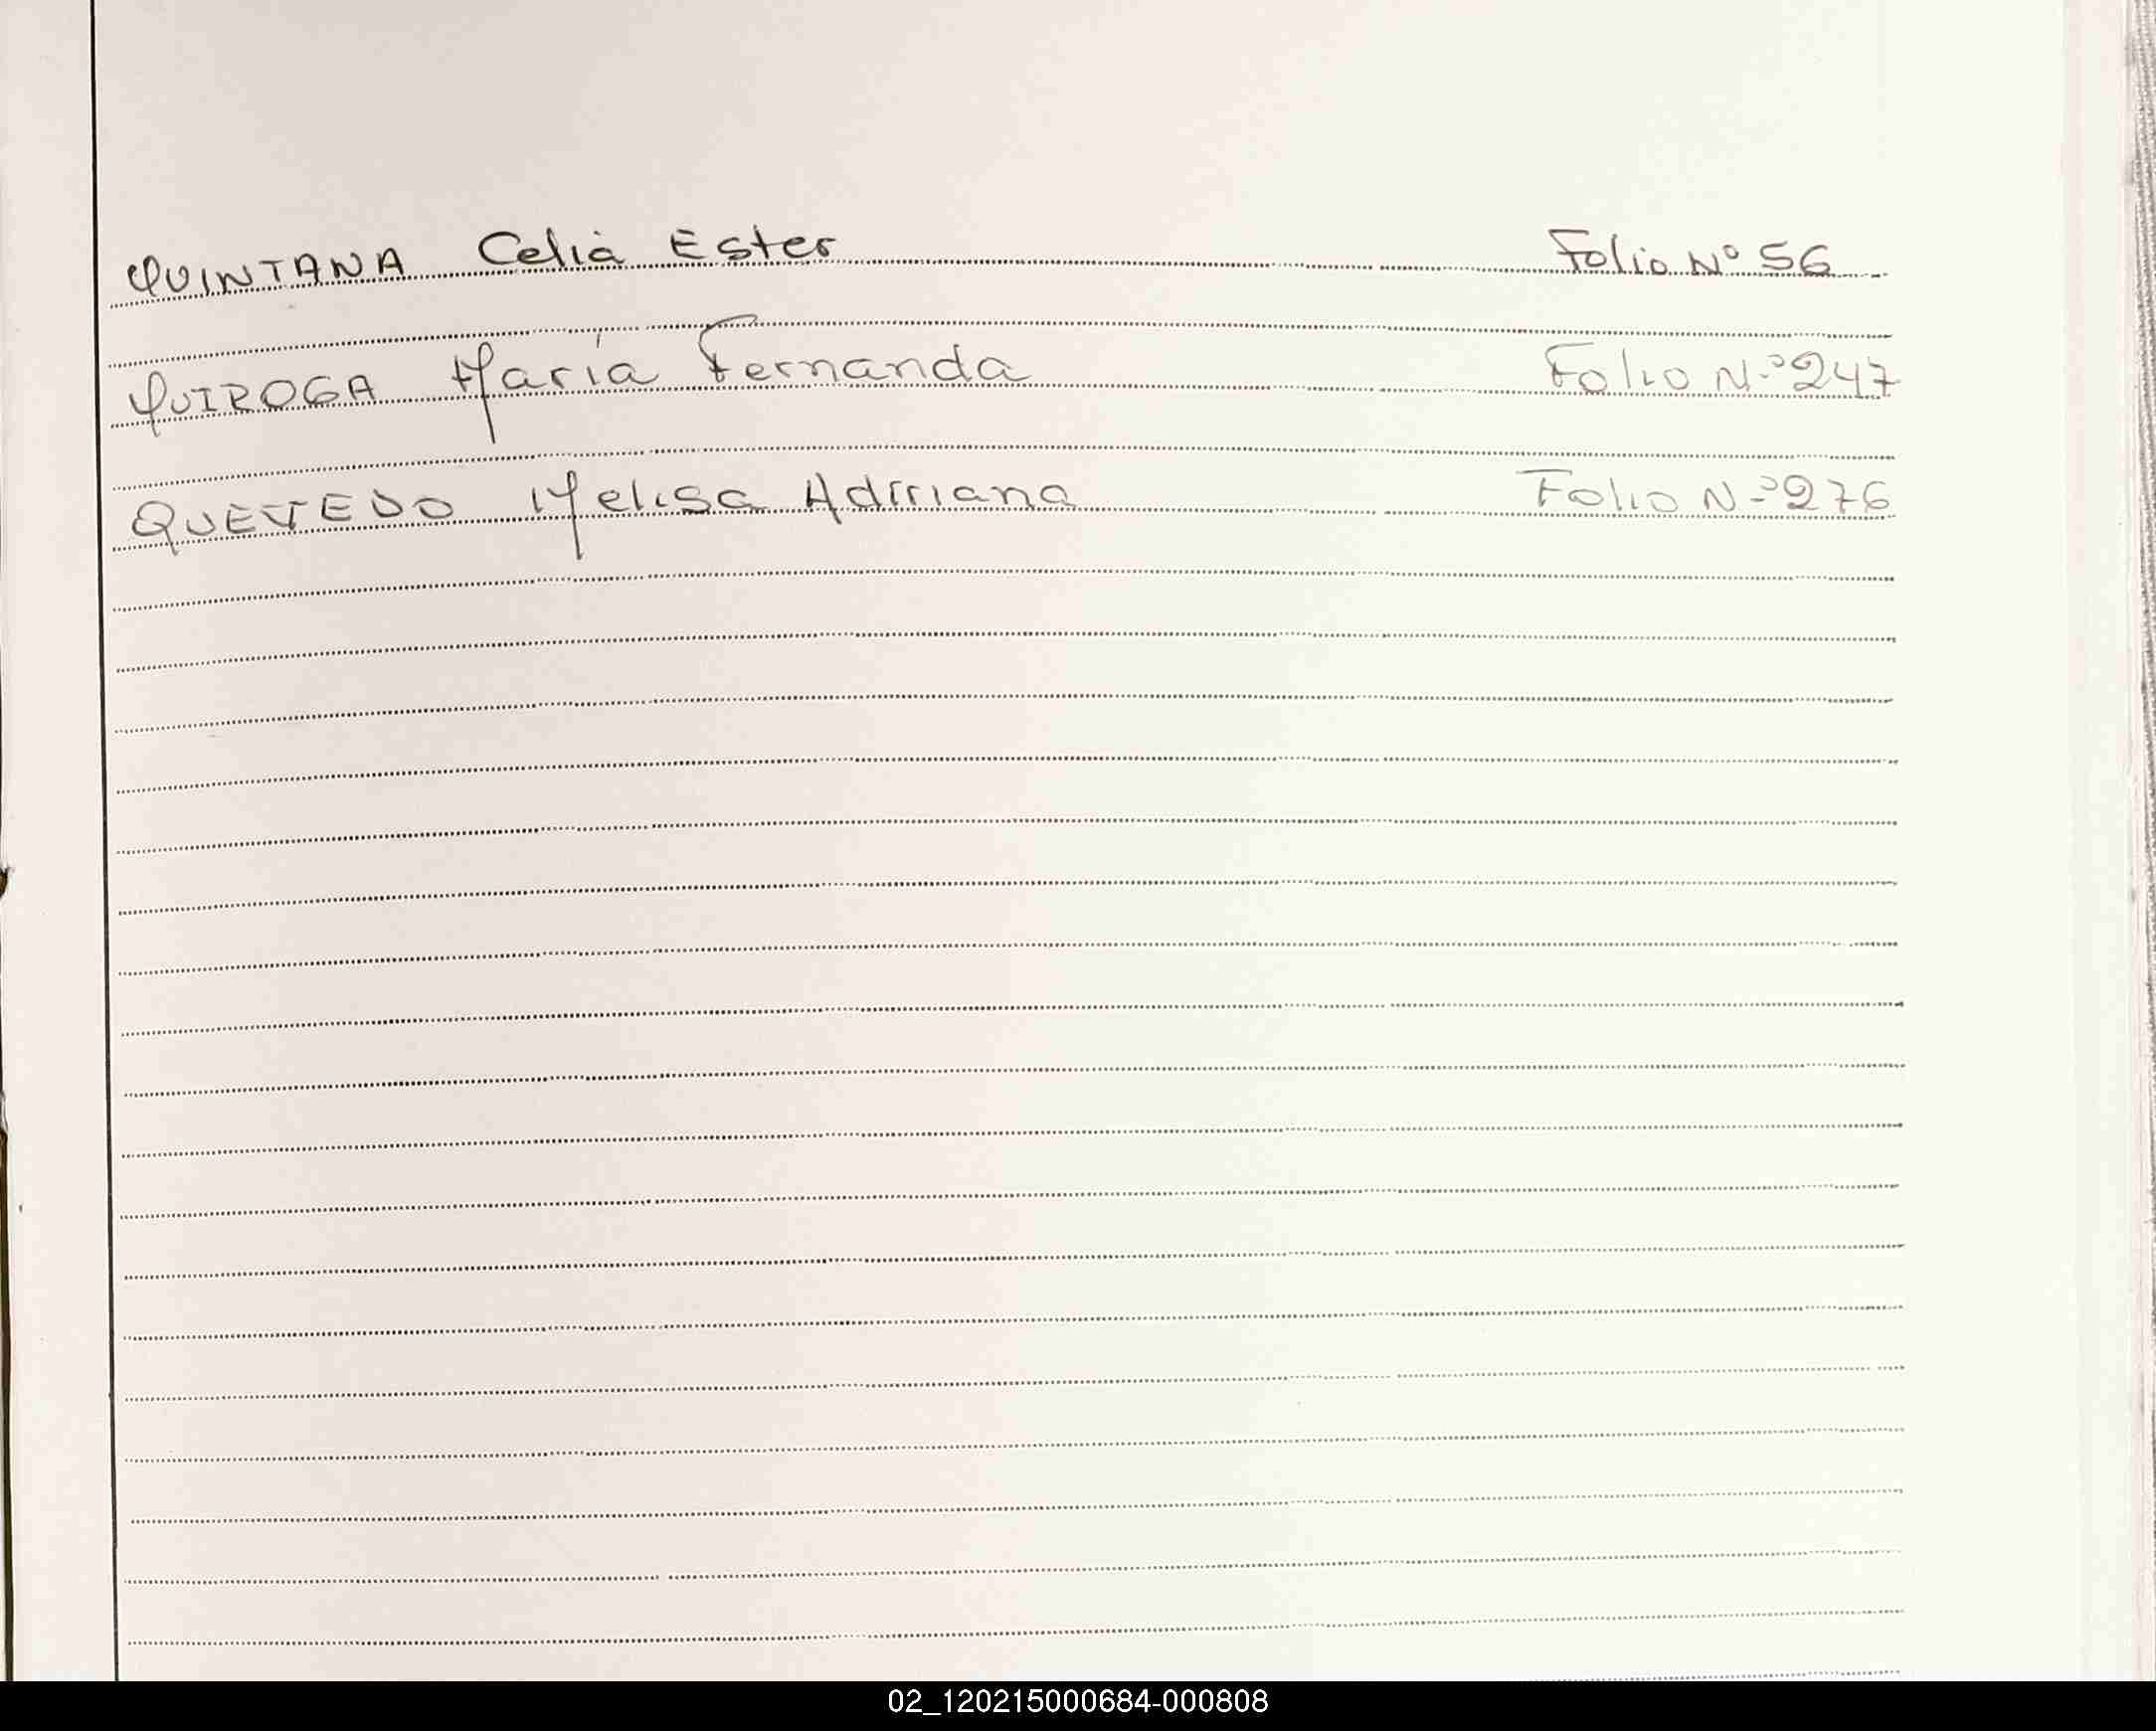 QUINTANA Celia Ester Folio Nº 56
QUIROGA María Fernanda Folio N.º 247
QUEVEDO Melisa Adriana Folio N.º 276
02_120215000684-000808